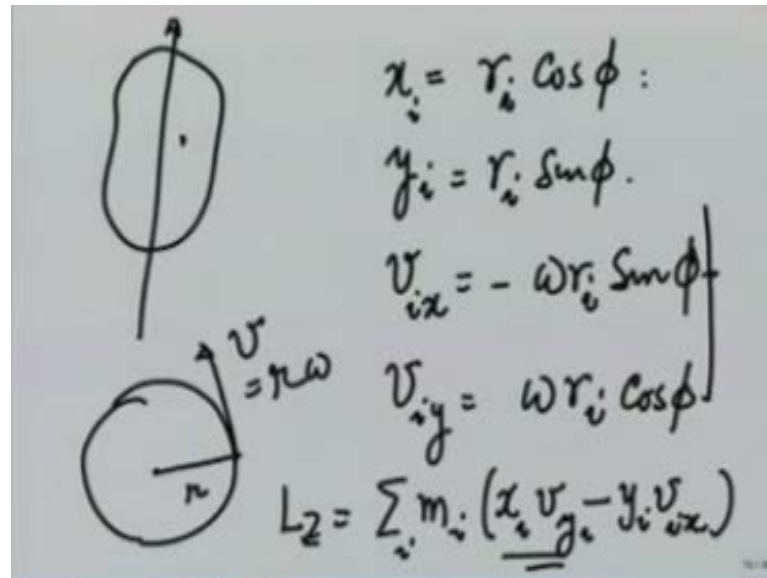 x_i = r_i Cos ϕ :
y_i = r_i Sin ϕ .
v_ix = - ω r_i Sin ϕ
v_iy = ω r_i Cos ϕ
v
= r ω
r
L_z = ∑_i m_i (x_i v_yi - y_i v_ix)